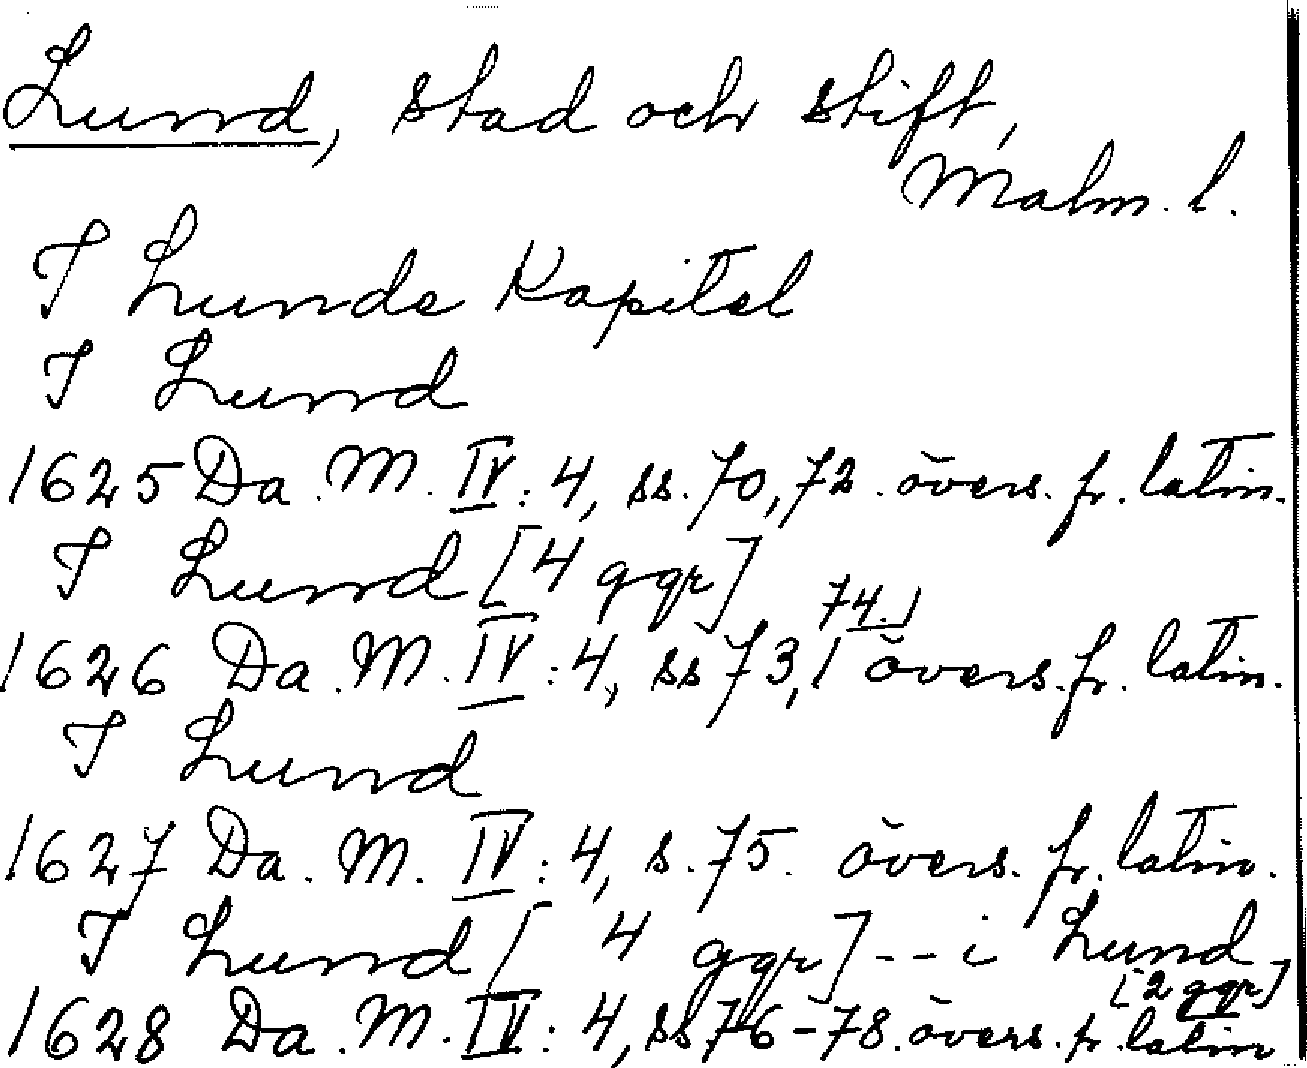 Lund, stad och stift,
Malm. l.
I Lunde Kapitel
I Lund
1625 Da. M. IV: 4, ss. 70, 72. övers. fr. latin.
I Lund [4 ggr]
74.
1626 Da. M. IV: 4, ss 73, övers. fr. latin.
I Lund
1627 Da. M. IV: 4, s. 75. övers. fr. latin.
I Lund [4 ggr] -- i Lund
[2 ggr]
1628 Da. M. IV: 4, ss 76-78. övers. fr. latin